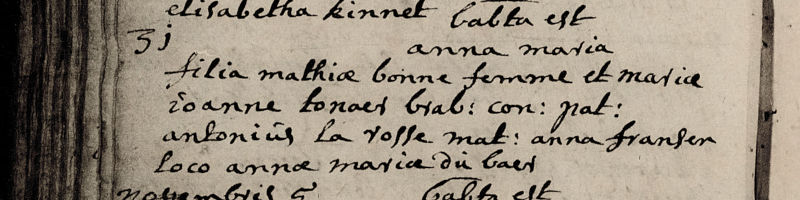 elisabetha kinnet babta est
3j
anna maria
filia mathiæ bonne femme et mariæ
ioanne tonaer brab: con: pat:
antoniüs la rosse mat: anna fransen
loco annæ mariæ dü baer
novembris 5 babta est